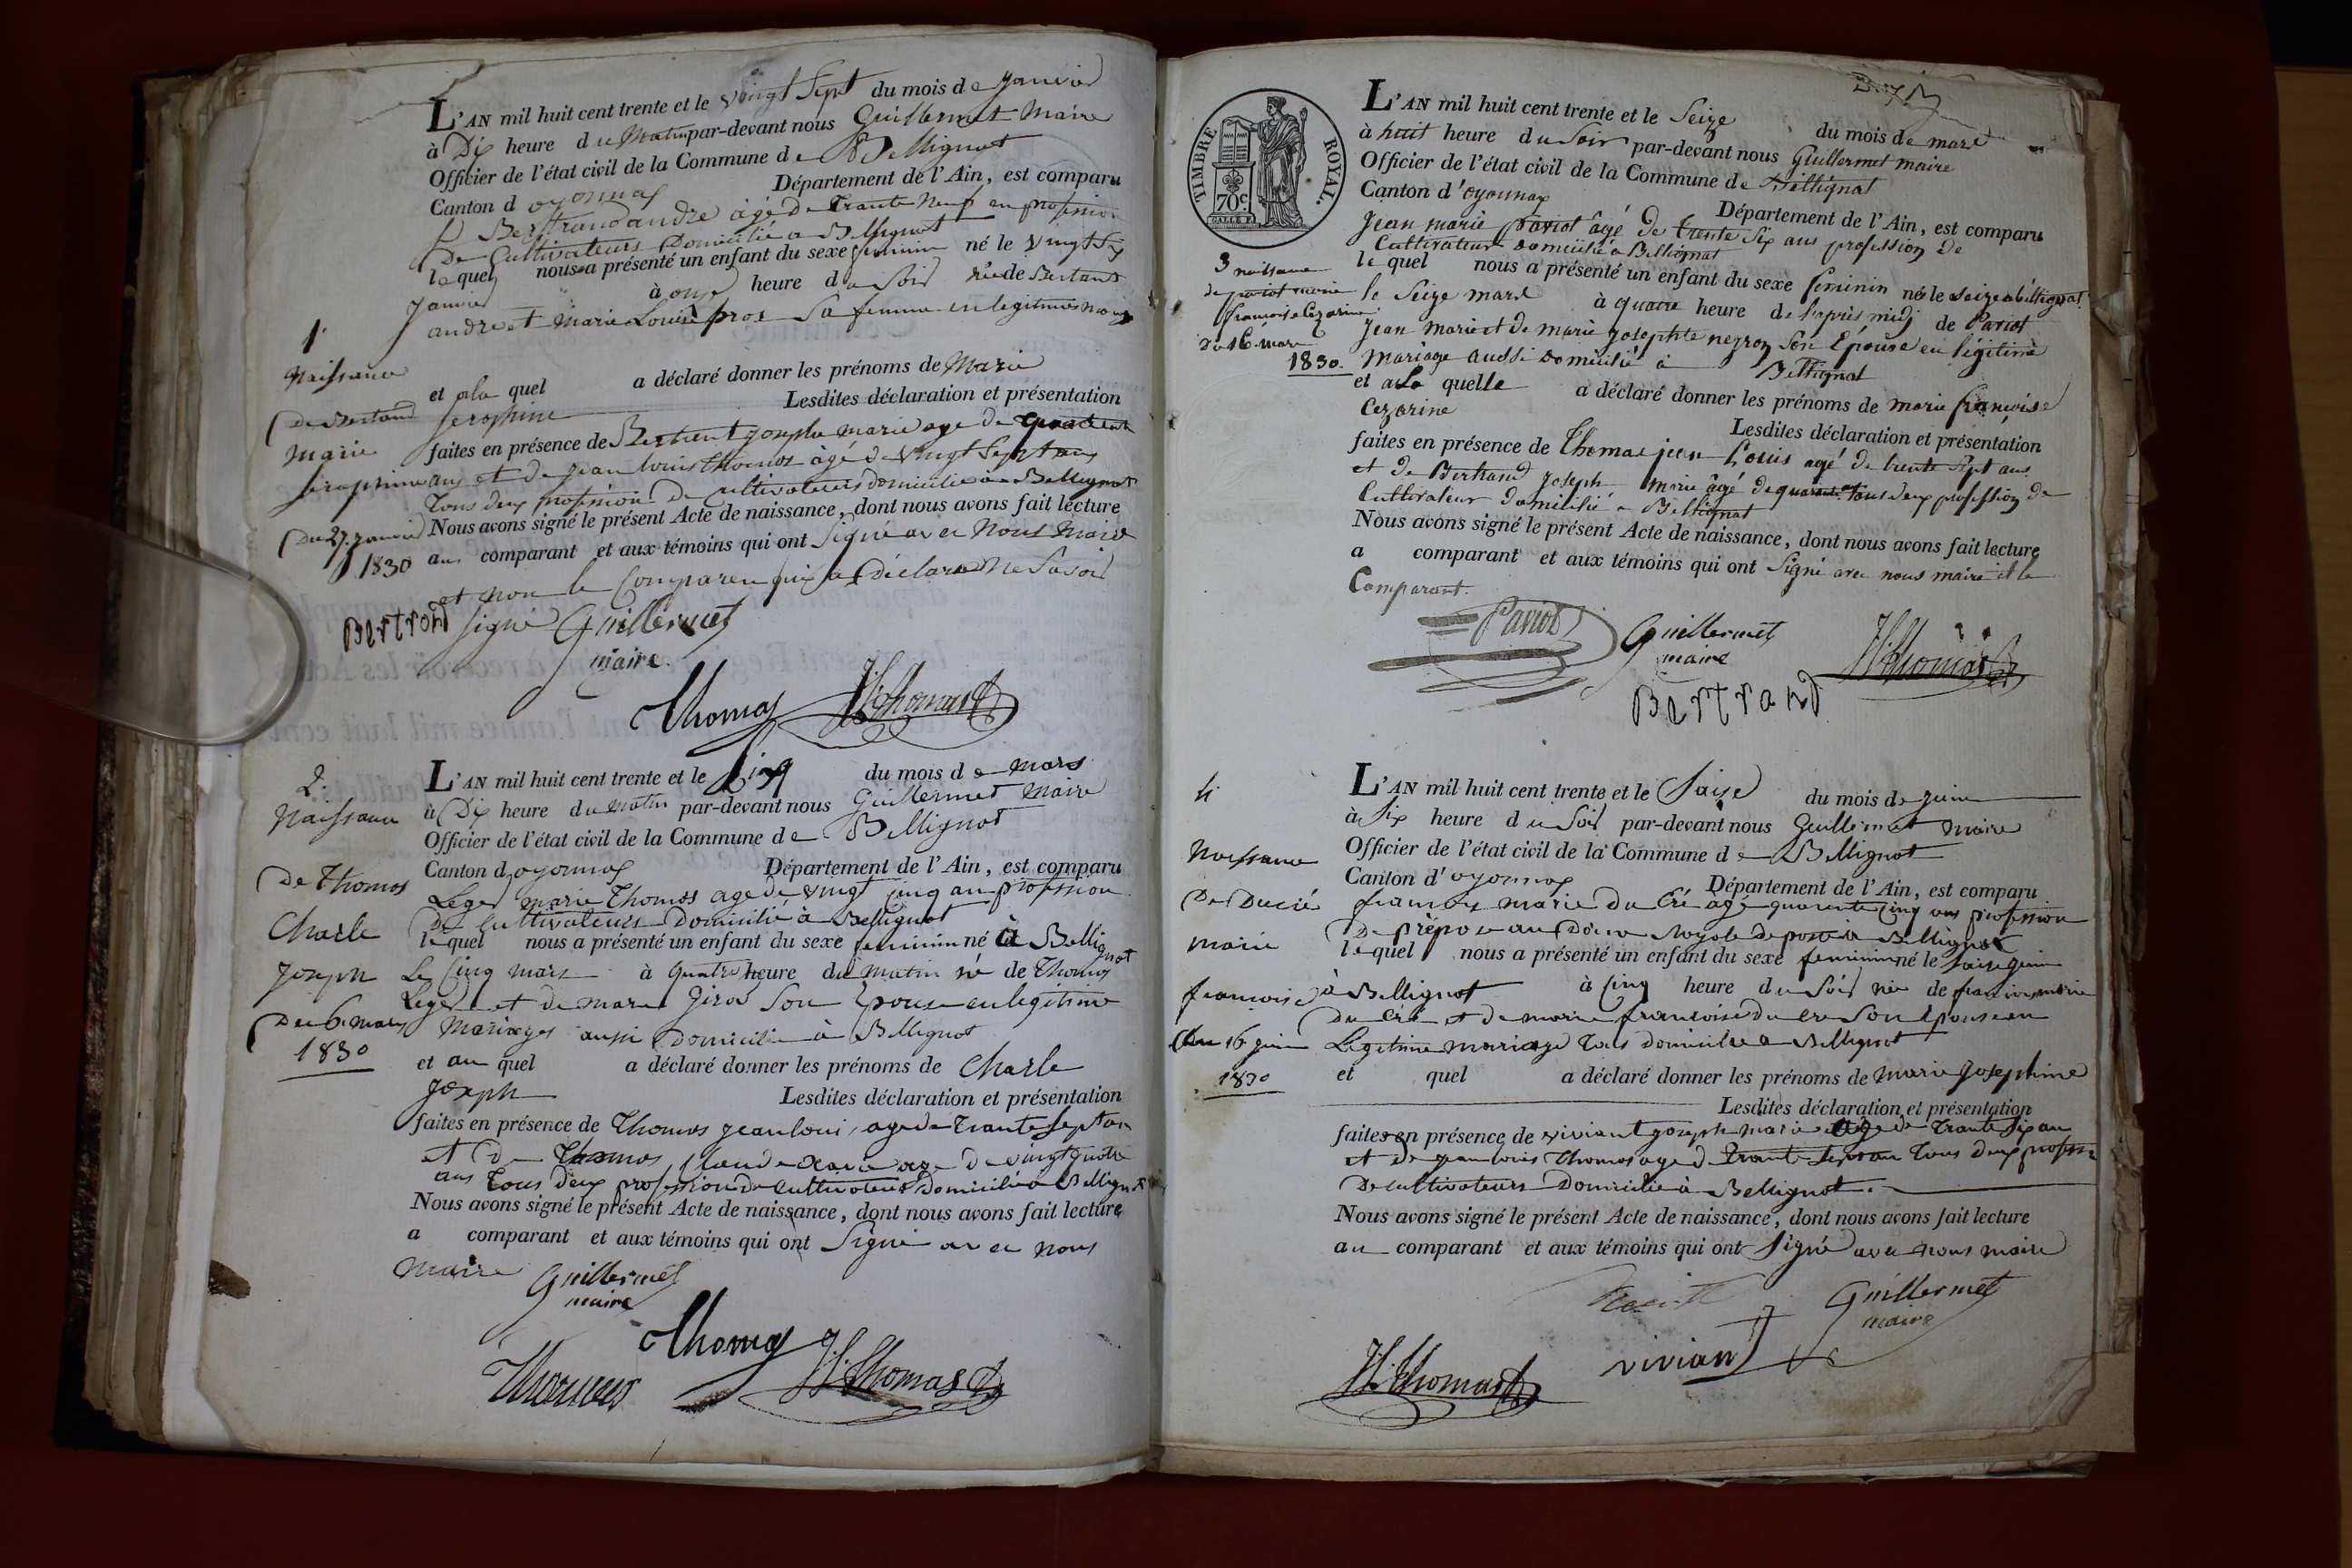 L'AN mil huit cent trente et le vingt Sept du mois de janvier
à Dix heure du Matin par-devant nous Guillermet Maire
Officier de l'état civil de la Commune de Bellignat
Canton d oyonnax Département de l'Ain, est comparu
Bertrand andre âgé de trante neuf an profession
De Cultivateurs Domicilié a Bellignat
lequel nous a présenté un enfant du sexe feminin né le vingt Six
janvier à onze heure du Soir née de Bertand
andre et Marie Louise pros Sa femme en legitimes
1.
Naissance
De Bertand
Marie
Seraphine
Du 27. janvier
1830
et a la quel a déclaré donner les prénoms de Marie
Serophine Lesdites déclaration et présentation
faites en présence de joseph marie age de
ans et de jean louis thomos âgé de vingt Sept ans
Tous deux profession De cultivateurs domicilié a Bellignat
Nous avons signé le présent Acte de naissance, dont nous avons fait lecture
au comparant et aux témoins qui ont Signé avec Nous Maire
et non le Comparen qui a Déclaré Ne Savoir
Signé
Bertrand Guillermet
maire.
Thomas JL Thomas
2.
Naissance
De Thomos
Charle
Joseph
Du 6. mars
1830
L'AN mil huit cent trente et le Cinq du mois de Mars
à Dix heure du matin par-devant nous Guillermet Maire
Officier de l'état civil de la Commune de Bellignat
Canton d oyonnax Département de l'Ain, est comparu
Leger marie Thomos age de vingt cinq an profession
De cultivateurs Domicilié à Bellignat
lequel nous a présenté un enfant du sexe feminin né à Bellignat
Le Cinq mars à quatre heure du matin né de Thomos
Leger et de marie Girod Son Epouse en legitime
Mariages aussi Domicilie à Bellignat
et au quel a déclaré donner les prénoms de Charle
Joseph Lesdites déclaration et présentation
faites en présence de Thomos jean loui, age de trante Sept an
et De Thomos Claude age De vingt quatre
ans Tous deux profession de cultivateurs domicilié a Bellignat
Nous avons signé le présent Acte de naissance, dont nous avons fait lecture
a comparant et aux témoins qui ont Signé avec nous
Maire Guillermet
maire
Thomas
Thomas JL Thomas
TIMBRE ROYAL.
70c.
L'AN mil huit cent trente et le Seize du mois de mars
à huit heure du Soir par-devant nous Guillermet maire
Officier de l'état civil de la Commune de Bellignat
Canton d'oyonnax Département de l'Ain, est comparu
Jean marie pariot âgé de trente Six ans profession de
Cultivateur domicilié à Bellignat
lequel nous a présenté un enfant du sexe feminin née le seize a bellignat
le Seize mars à quatre heure de l'après midi de Pariot
Jean marie et de marie josephte neyron son Épouse en légitime
mariage aussi domicilié à Bellignat
3 naissance
de pariot marie
francoise Cezarine
Du 16 mars
1830.
et a la quelle a déclaré donner les prénoms de marie françoise
Cezarine Lesdites déclaration et présentation
faites en présence de Thomas jean Louis agé de trente sept ans
et de Bertrand joseph marie âgé de quarante ans tous deux profession de
Cultivateur domicilié a Bellignat
Nous avons signé le présent Acte de naissance, dont nous avons fait lecture
a comparant et aux témoins qui ont Signé avec nous maire et le
Comparant.
Pariot Guillermet
maire
JL Thomas
Bertrand
4
Naissance
De Ducré
marie
francoise
Du 16 juin
1830
L'AN mil huit cent trente et le Saise du mois de juin
à Six heure du Soir par-devant nous Guillermet Maire
Officier de l'état civil de la Commune de Bellignat
Canton d'oyonnax Département de l'Ain, est comparu
francois marie du Cré agé quarente cinq ans profession
De prepose au Royale de poste a Bellignat
lequel nous a présenté un enfant du sexe feminin né le saise juin
à Bellignat à cinq heure du Soir née de francois marie
du Cré et de marie francoise du cre Son épouse en
Legetime mariage tous domicilié a Bellignat
et quel a déclaré donner les prénoms de marie josephine
Lesdites déclaration et présentation
faites en présence de viviant joseph marie age de trante Six an
et de jean louis Thomos age de trante sept an Tous deux profession
De cultivateurs Domicilie à Bellignat.
Nous avons signé le présent Acte de naissance, dont nous avons fait lecture
au comparant et aux témoins qui ont Signé avec nous maire
Guillermet
maire
vivian
JL Thomas